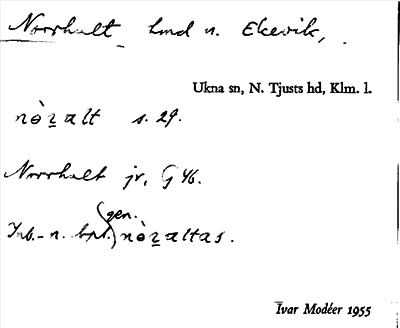 Norrhult hmd n. Ekevik,
Ukna sn, N. Tjusts hd, Klm. l.
nòꞧalt s. 29.
Norrhult jr, G 46.
gen.
Inb.-n. bpl. nòꞧaltas.
Ivar Modéer 1955